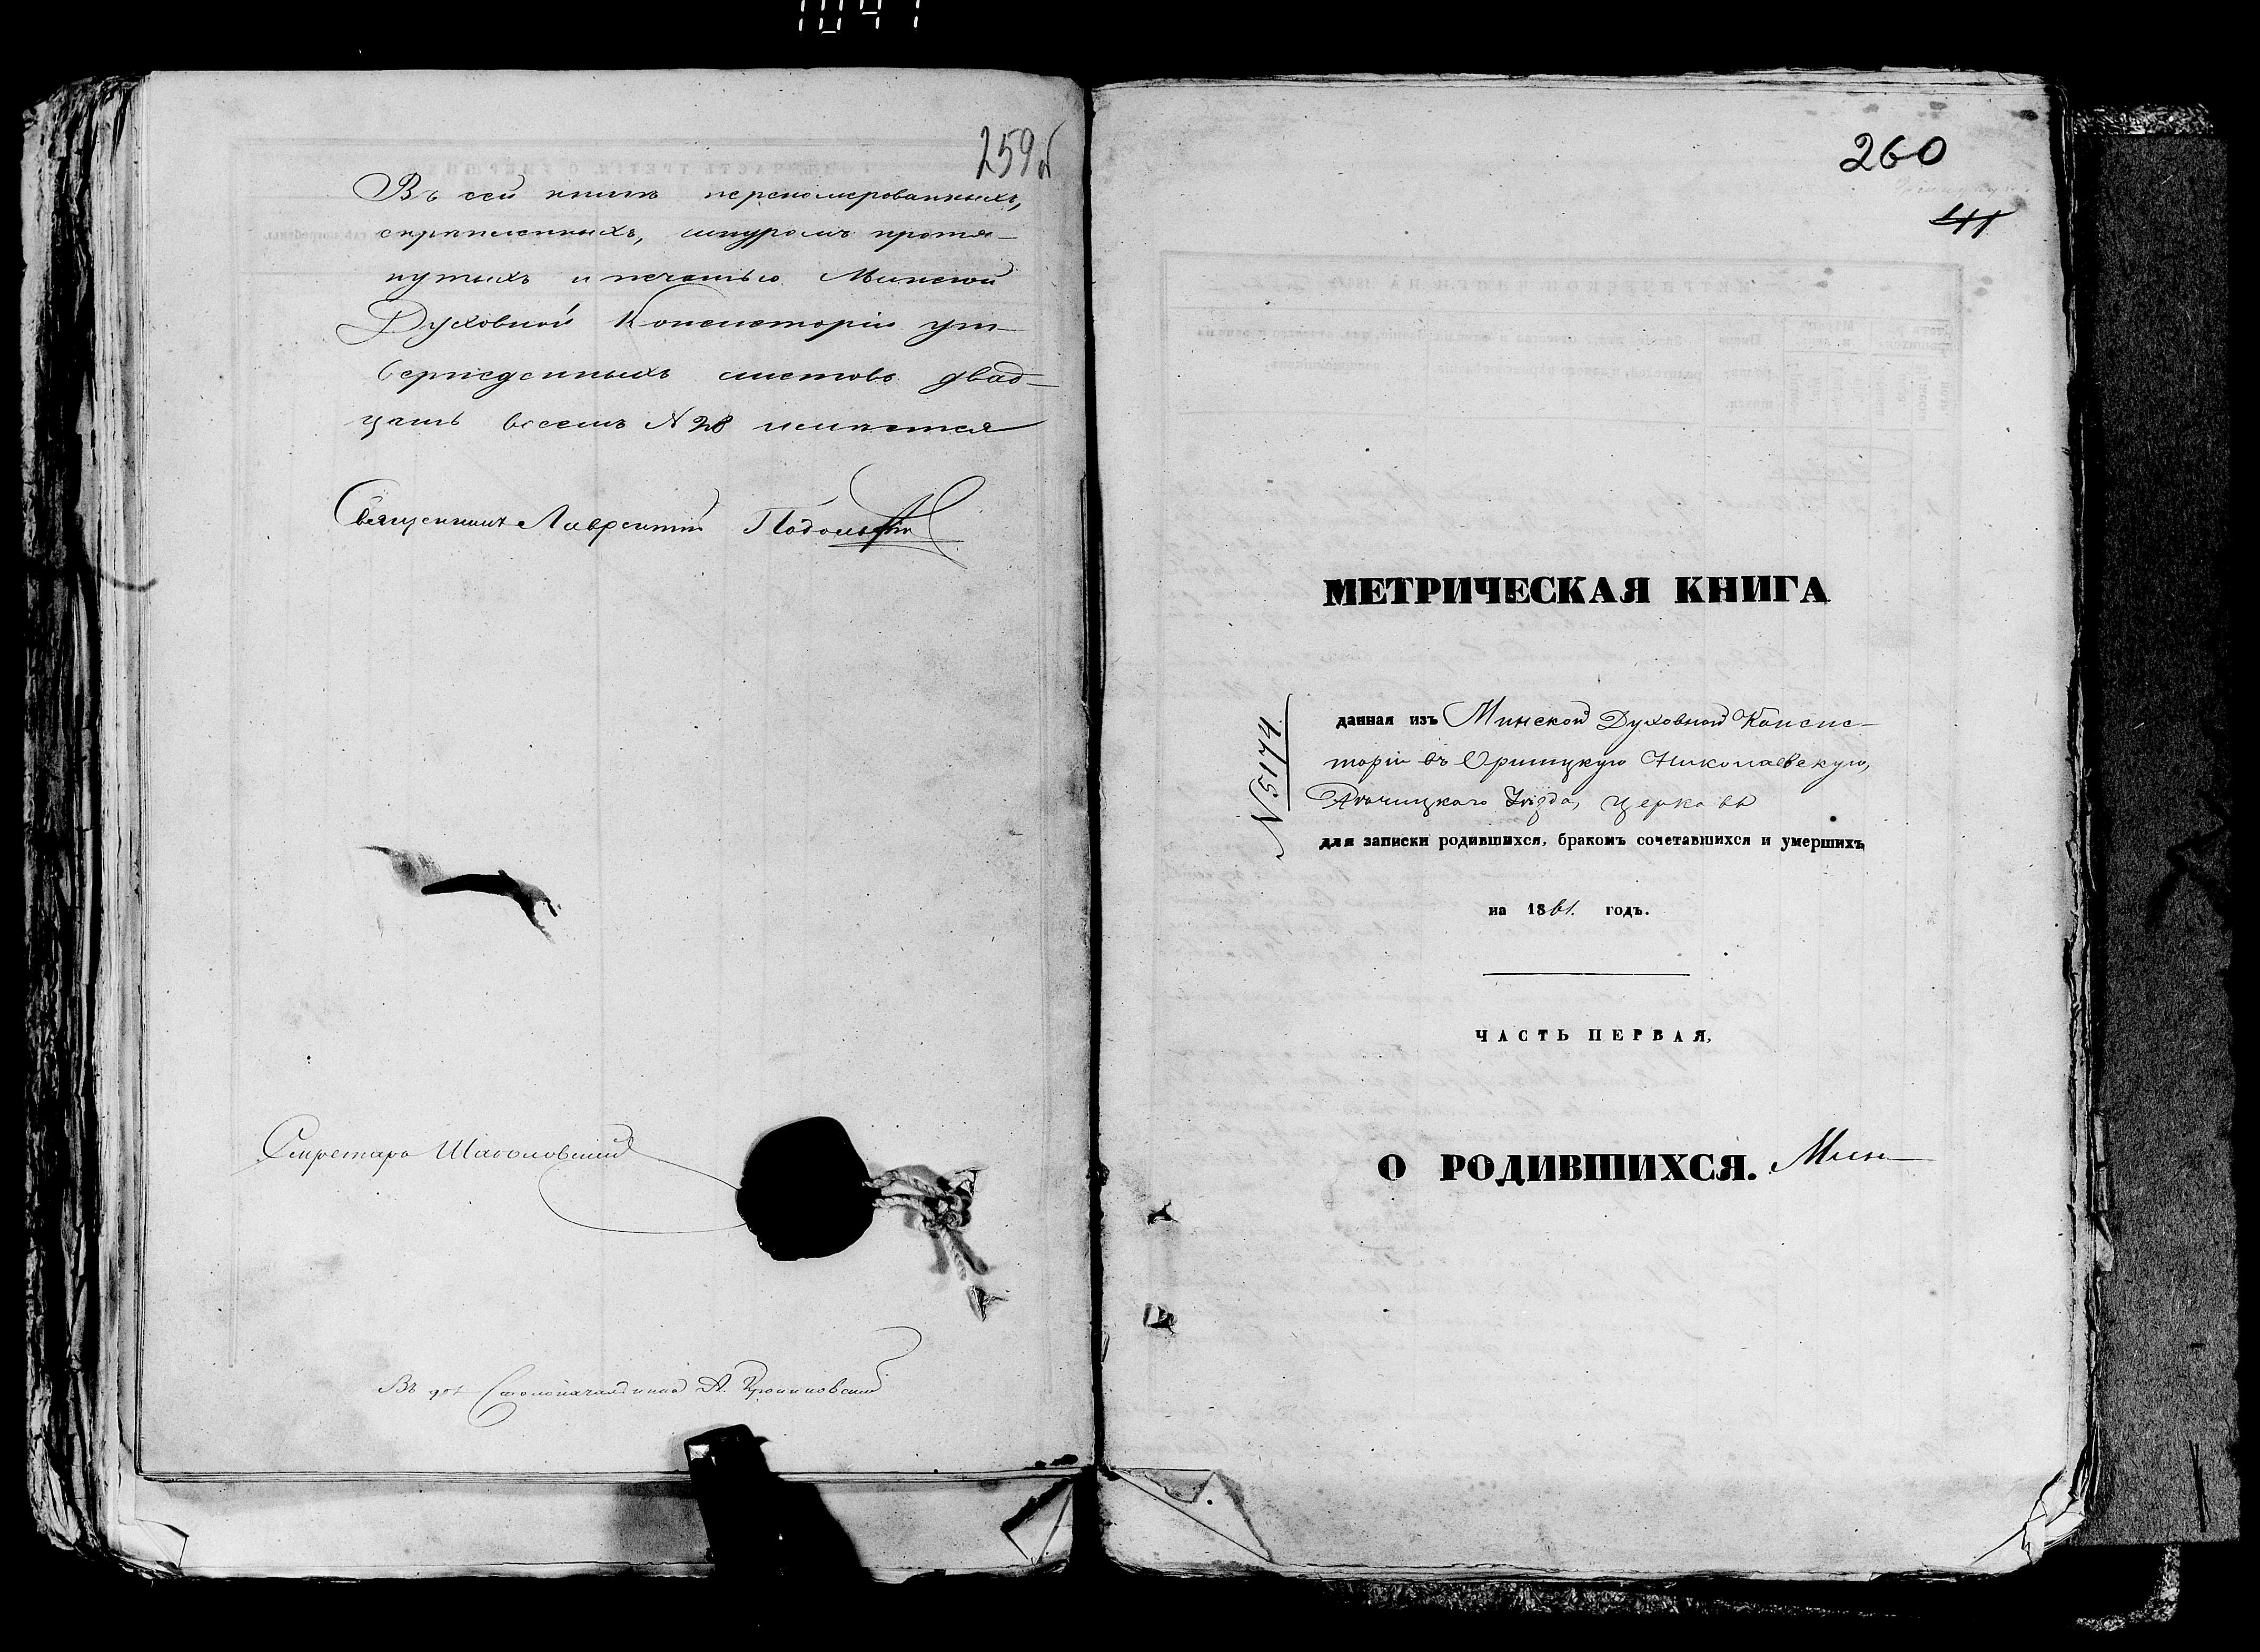 1041
259об
Въ сей книгѣ перенумерованныхъ,
скрѣпленныхъ, шнуромъ протя-
нутыхъ и печатью Минской
Духовной Консисторіи ут-
вержденныхъ листовъ двад-
цать восемь № 28 имѣется
Священникъ Лаврентій Подольскій
Секретарь
Столоначальника А.
260
41
МЕТРИЧЕСКАЯ КНИГА
№ 5174
данная изъ Минской Духовной Консис-
торіи въ Николаевскую,
Рѣчицкаго Уѣзда, церковь
для записки родившихся, бракомъ сочетавшихся и умершихъ
на 1861. годъ.
ЧАСТЬ ПЕРВАЯ,
О РОДИВШИХСЯ. Мин-